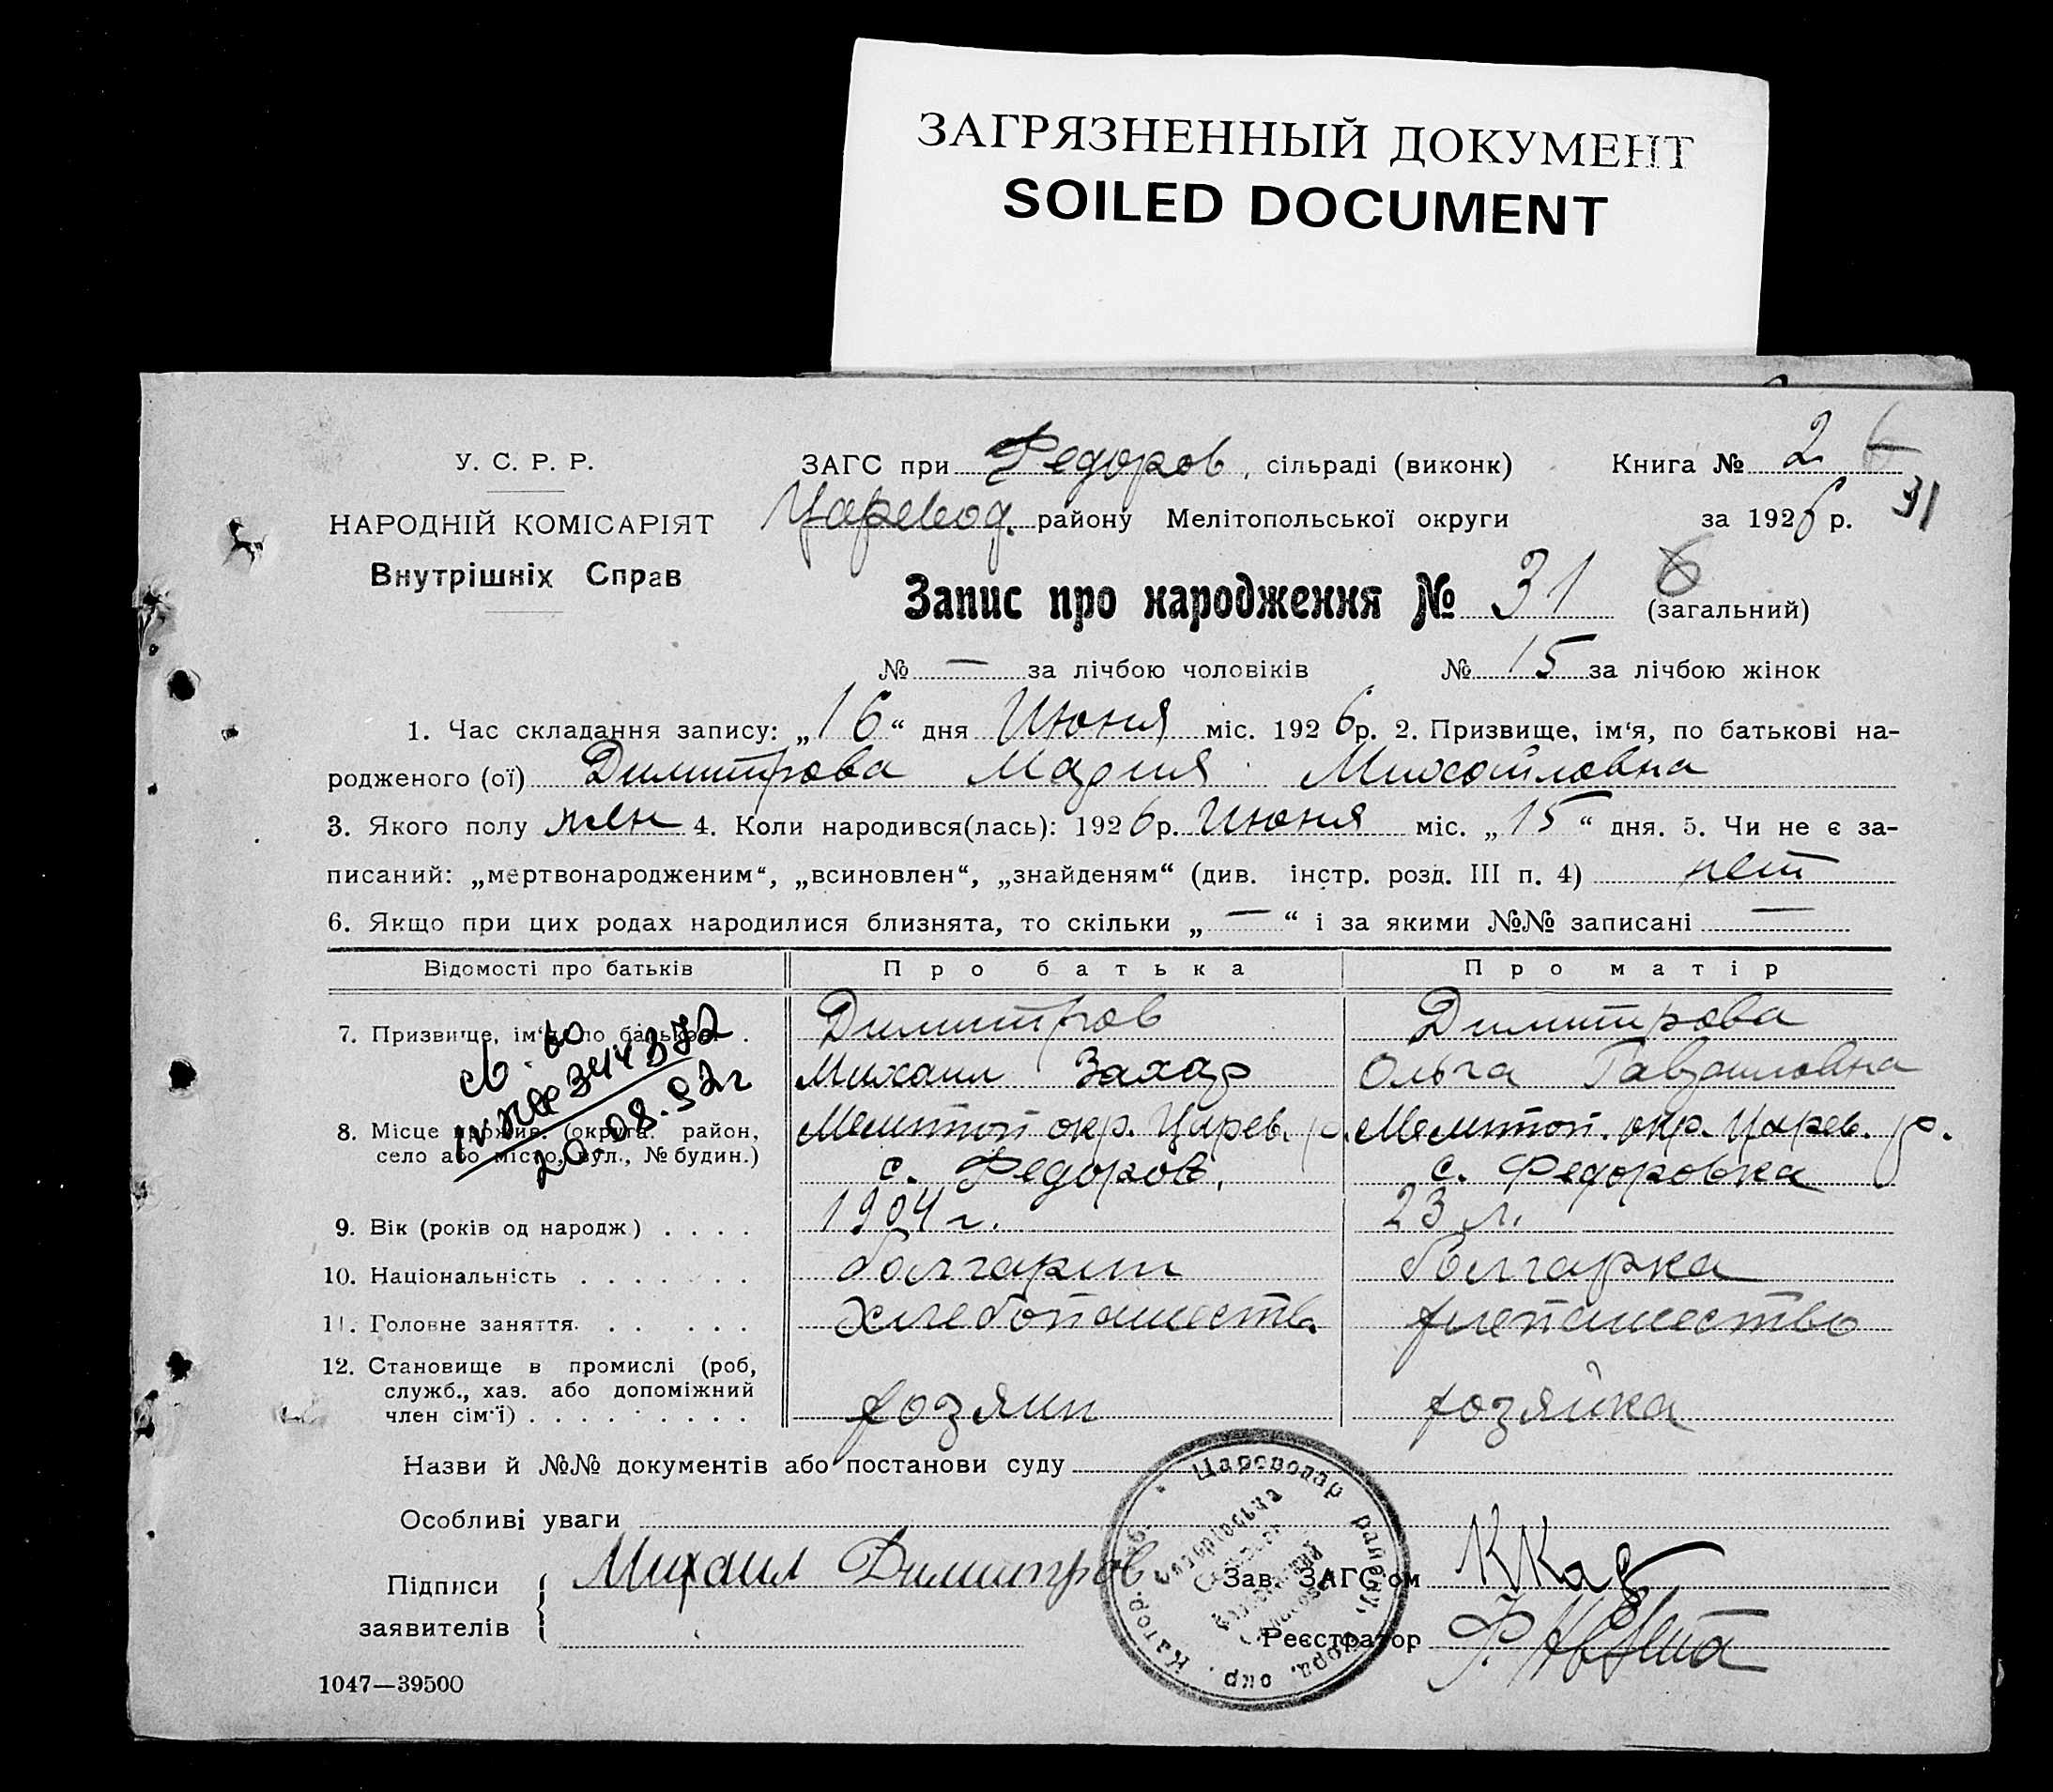 ЗАГРЯЗНЕННЫЙ ДОКУМЕНТ
SOILED DOCUMENT
У. С. Р. Р.
НАРОДНІЙ КОМІСАРІЯТ
Внутрішніх Справ
ЗАГС при Федоров, сільраді (виконк) Книга № 2 6
31
Царевод. району Мелітопольської округи за 1926 р.
Запис про народження № 31 6 (загальний)
№ — за лічбою чоловіків № 15 за лічбою жінок
1. Час складання запису: „16“ дня Июня міс. 1926р. 2. Призвище, ім‘я, по батькові на-
родженого (ої) Димитрова Мария Михайловна
3. Якого полу жен 4. Коли народився(лась): 1926р. Июня міс. „15“ дня. 5. Чи не є за-
писаний: „мертвонародженим“, „всиновлен“, „знайденям“ (див. інстр. розд. III п. 4) нет
6. Якщо при цих родах народилися близнята, то скільки „—“ і за якими №№ записані —
Відомості про батьків Про батька Про матір
7. Призвище, ім‘я, по батькові . Димитров Димитрова
Михаил Захар Ольга
8. Місце прожив. (округа. район, Мелитоп окр. Царев. р. Мелитоп. окр. Царев. р.
село або місто, вул., № будин.) с. Федоров. с. Федоровка
20.08.92г
9. Вік (років од народж) . . . . 1904 г. 23 л.
10. Національність . . . . . . . болгарин болгарка
11. Головне заняття. . . . . . хлебопашеств. хлепашество
12. Становище в промислі (роб,
служб., хаз. або допоміжний
член сім‘ї) . . . . . . . . . хозяин хозяйка
Назви й №№ документів або постанови суду
Особливі уваги
Підписи Михаил Димитров Зав. ЗАГС‘ом
заявителів Реєстратор
Цароводар району,
1047—39500